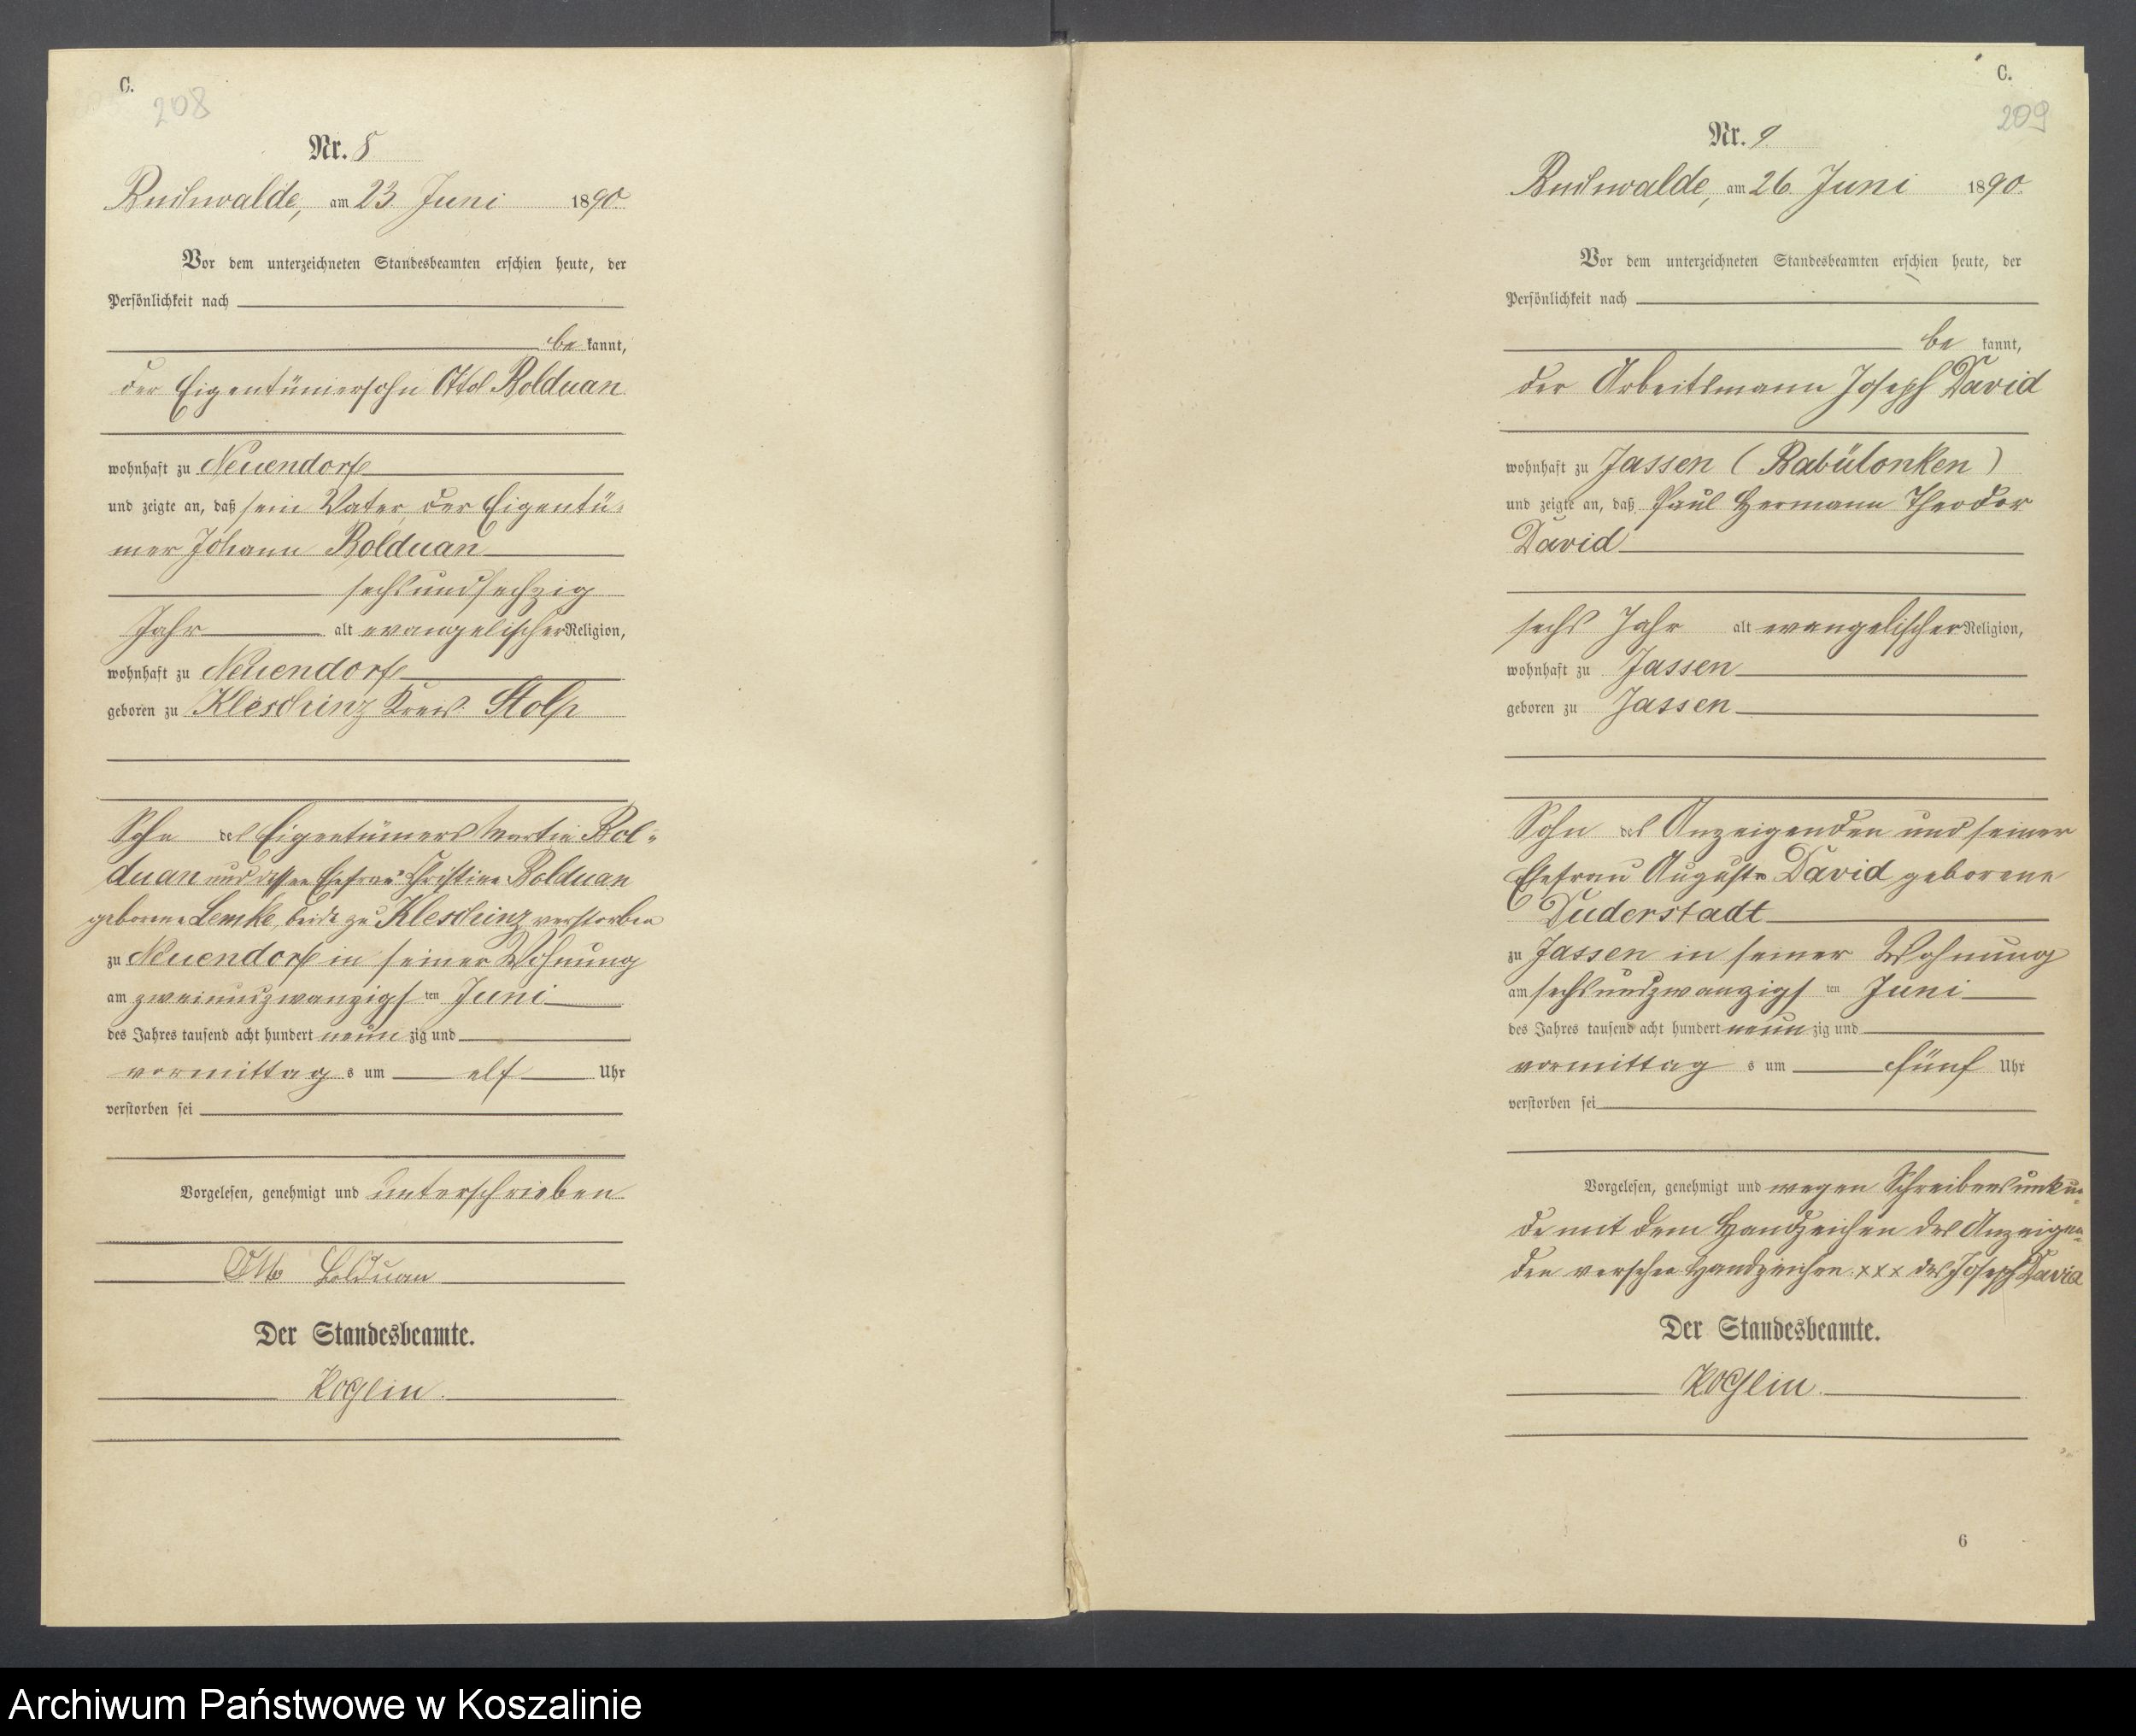 C.
208
Nr. 8
Buchwalde, am 23 Juni 1890
Vor dem unterzeichneten Standesbeamten erschien heute, der
Persönlichkeit nach
be kannt,
der Eigentümersohn Otto Bolduan
wohnhaft zu Neuendorf
und zeigte an, daß sein Vater, der Eigentü-
mer Johann Bolduan
sechsundsechzig
Jahr alt evangelischer Religion,
wohnhaft zu Neuendorf
geboren zu Kleschinz Kreis Stolp
Sohn des Eigentümers Martin Bol-
duan und dessen Ehefrau Christine Bolduan
geborene Lemke, beide zu Kleschinz verstorben
zu Neuendorf in seiner Wohnung
am zweiundzwanzigsten Juni
des Jahres tausend acht hundert neunzig und
vormittags um elf Uhr
verstorben sei
Vorgelesen, genehmigt und unterschrieben
Otto Bolduan
Der Standesbeamte.
Koglin.
C.
209
Nr. 9.
Buchwalde, am 26 Juni 1890.
Vor dem unterzeichneten Standesbeamten erschien heute, der
Persönlichkeit nach
be kannt,
der Arbeitsmann Joseph David
wohnhaft zu Jassen (Babülonken)
und zeigte an, daß Paul Hermann Theodor
David
sechs Jahr alt evangelischer Religion,
wohnhaft zu Jassen
geboren zu Jassen
Sohn des Anzeigenden und seiner
Ehefrau Auguste David geborene
Duderstadt
zu Jassen in seiner Wohnung
am sechsundzwanzigsten Juni
des Jahres tausend acht hundert neunzig und
vormittags um fünf Uhr
verstorben sei
Vorgelesen, genehmigt und wegen Schreibensunkun-
de mit dem Handzeichen des Anzeigen-
den versehen Handzeichen xxx des Joseph David
Der Standesbeamte.
Koglin.
6
Archiwum Państwowe w Koszalinie